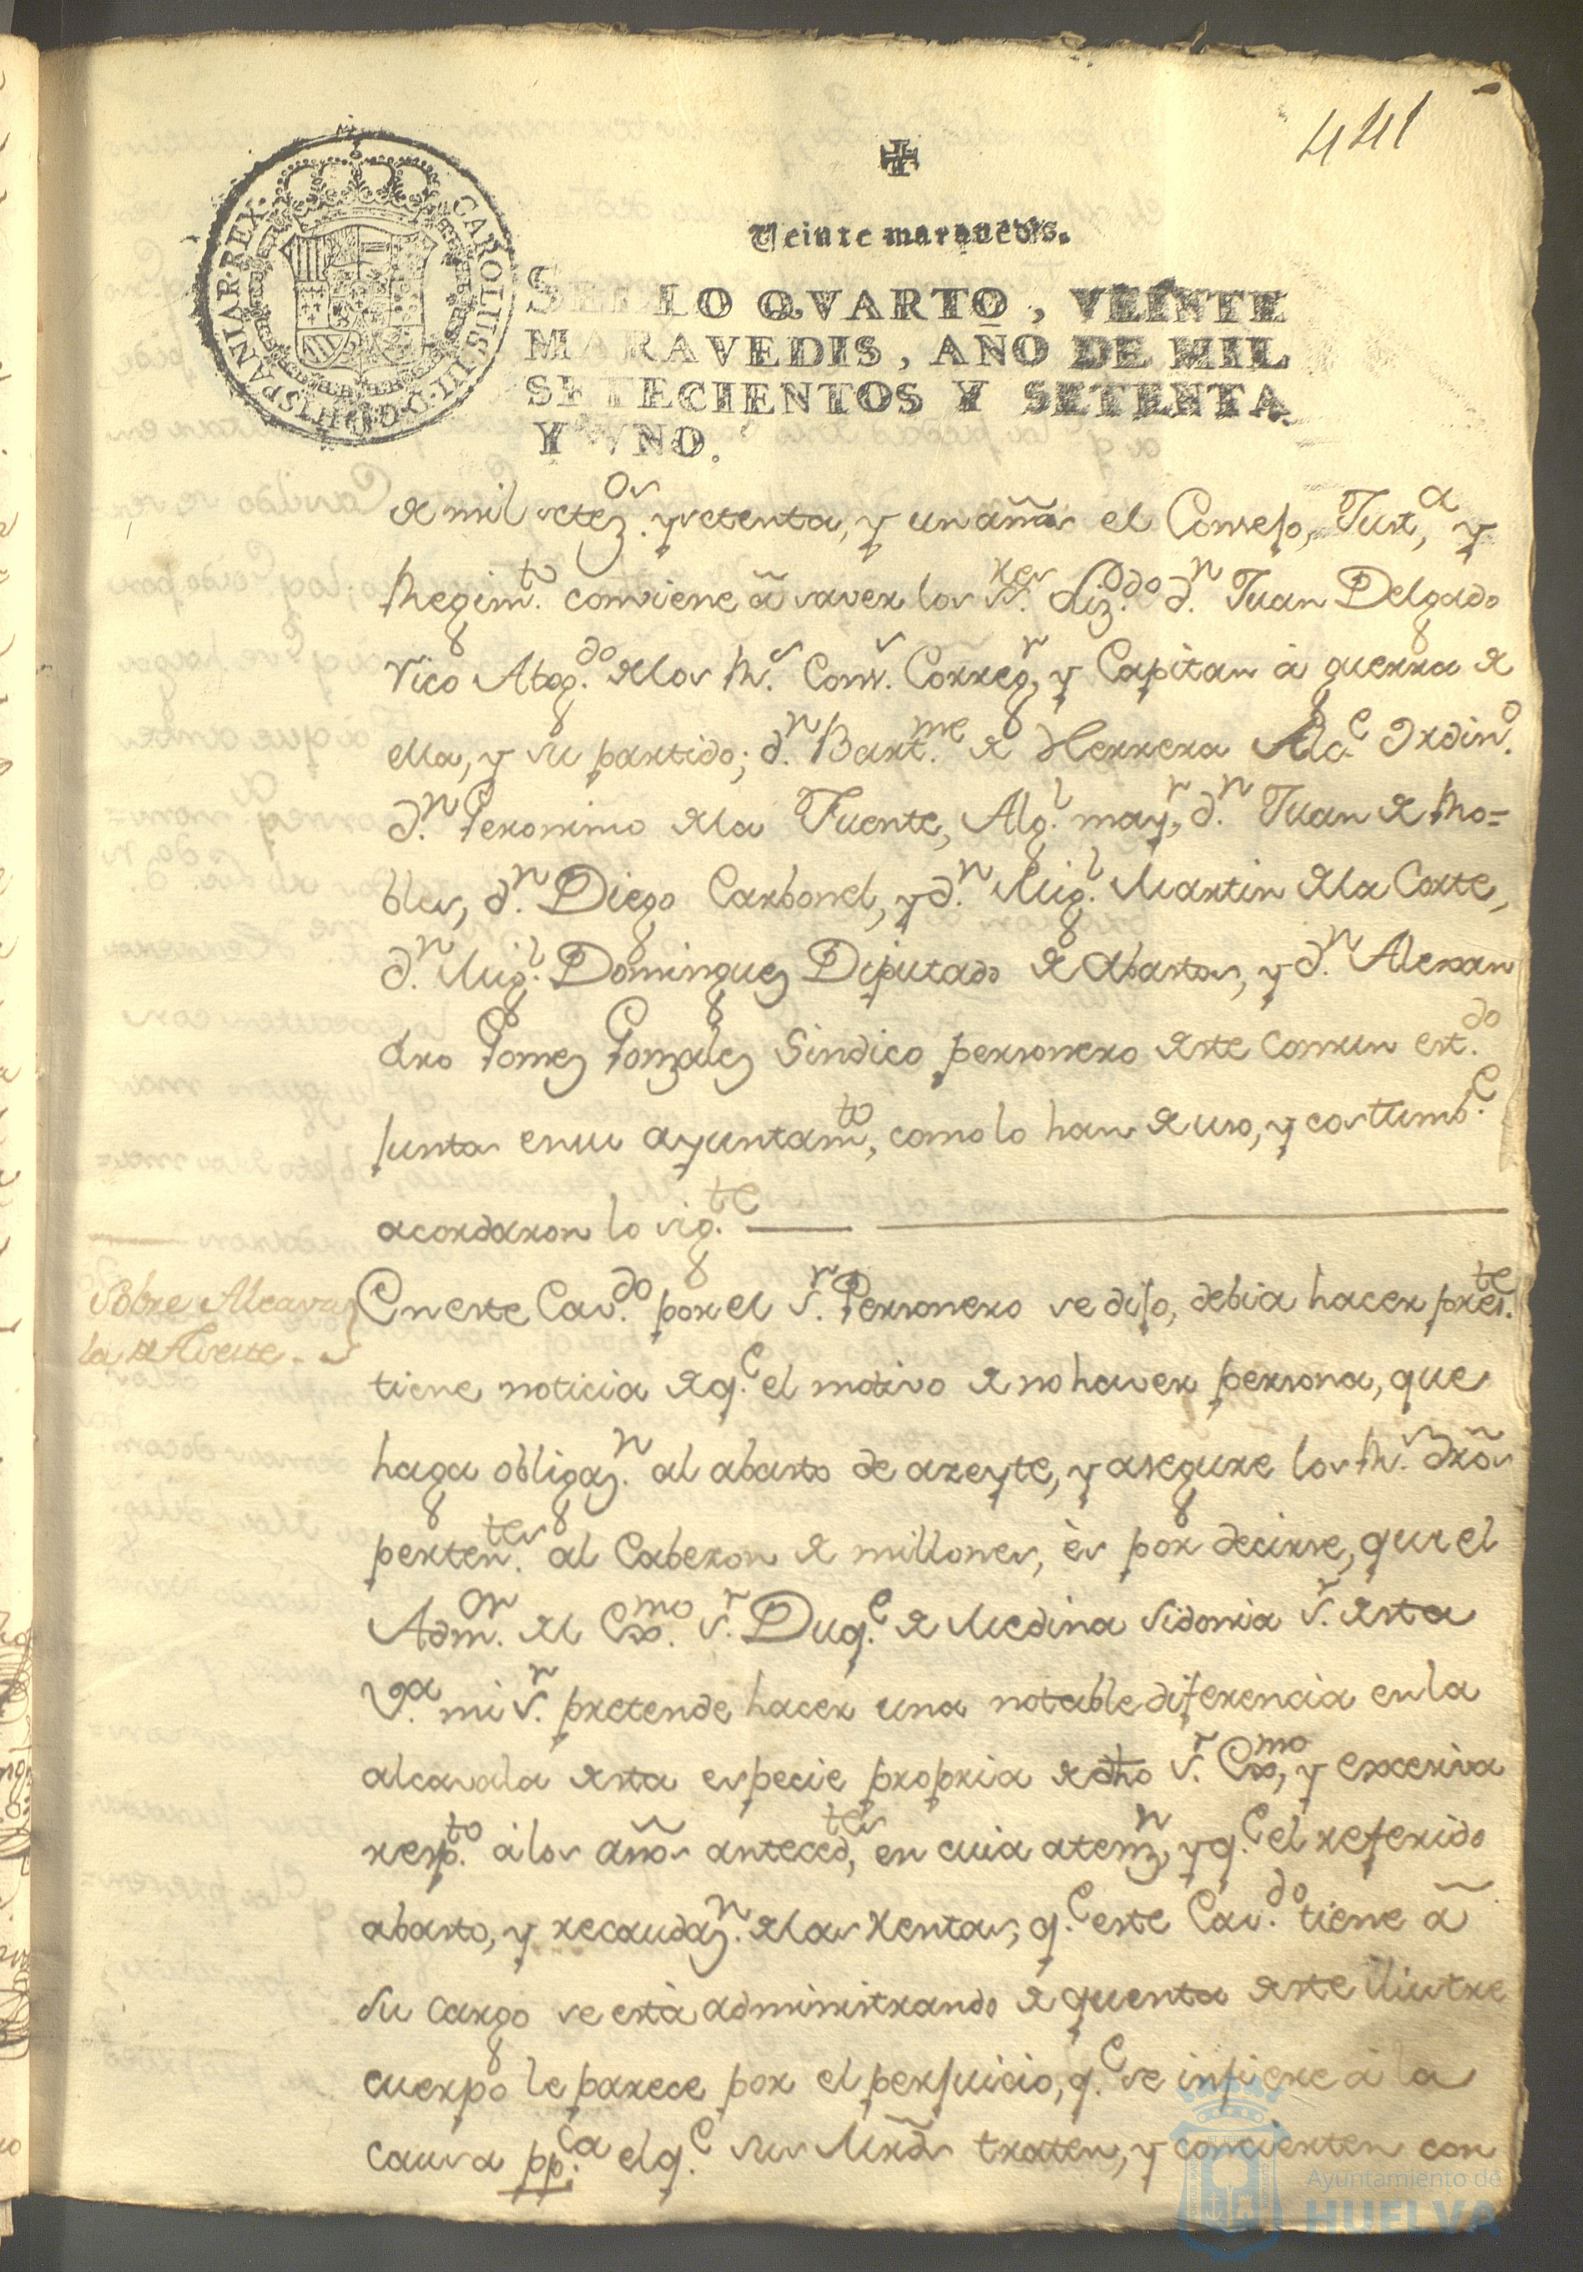 441
Veinte maravedis.
SELLO QVARTO, VEINTE
MARAVEDIS, AÑO DE MIL
SETECIENTOS Y SETENTA
Y VNO.
CAROLUS III D G HISPANIAR REX
de mil setez.os y setenta, y un años el Consejo, Just.a, y
Regim.to conviene â saver los S.res Liz.do d.n Juan Delgado
Vico Abog.do delos R.s Cons.s Correg.r, y Capitan à guerra de
ella, y su partido; d.n Bart.me de Herrera Alc.e Ordin.o
d.n Geronimo dela Fuente, Alg.l may.r, d.n Juan de Ro=
bles, d.n Diego Carbonel, y d.n Mig.l Martin dela Corte,
d.n Mig.l Dominguez Diputado de Abastos, y d.n Alexan
dro Gomez Gonzalez Sindico personero deste comun est.do
juntos ensu ayuntam.to, como lo han de uso, y costumb.e
acordaron lo sig.te
Sobre Alcava
la de Aceite.
En este Cav.do por el S.r Personero se dijo, debia hacer pres.te
tiene noticia de q.e el motivo de no haver persona, que
haga obligaz.n al abasto de azeyte, y asegure los R.s dros
perten.tes al Cabezon de millones, ès por decirse, que el
Adm.or del Exmo. S.r Duq.e de Medina Sidonia S.r desta
V.a mi S.r pretende hacer una notable diferencia en la
alcavala desta especie propria de dho S.r Exmo, y excesiva
resp.to à los años anteced.tes, en cuia atenz.n, y q.e el referido
abasto, y recaudaz.n delas Rentas, q.e este Cav.do tiene â
su cargo se està administrando de quenta deste ilustre
cuerpo le parece por el perjuicio, q.e se infiere à la
causa pp.ca el q.e sus Mrds traten, y concierten con
Ayuntamiento de
HUELVA